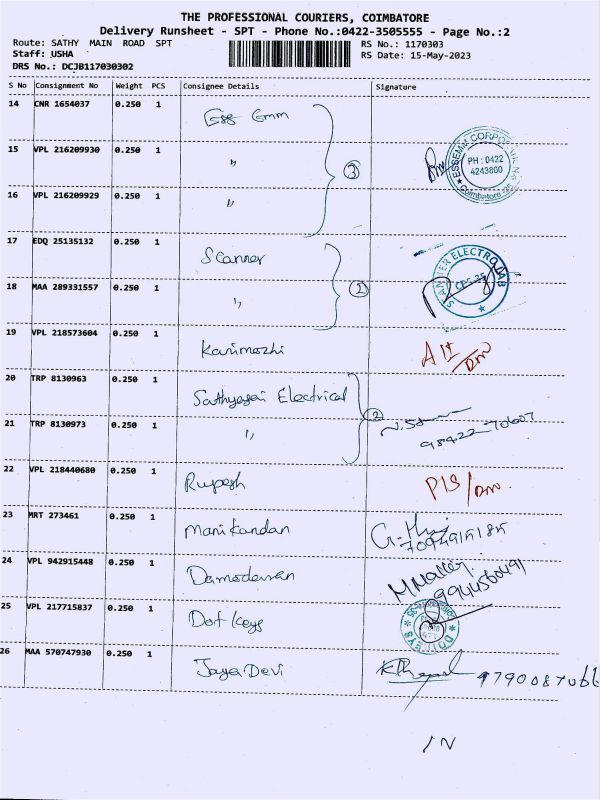 THE PROFESSIONAL COURIERS, COIMBATORE
Delivery Runsheet - SPT - Phone No.:0422-3505555 - Page No.:2
Route: SATHY MAIN ROAD SPT
RS No.: 1170303
Staff: USHA
RS Date: 15-May-2023
DRS No.: DCJB117030302
S No Consignment No Weight PCS Consignee Details Signature
14 CNR 1654037 0.250 1 Ess Emm
15 VPL 216209930 0.250 1 "
3
PH : 0422
4243800
16 VPL 216209929 0.250 1 "
17 EDQ 25135132 0.250 1 Scanner
18 MAA 289331557 0.250 1 "
2
19 VPL 218573604 0.250 1 Kanimozhi
20 TRP 8130963 0.250 1 Sathyasai Electrical
2
21 TRP 8130973 0.250 1 "
98422 70607
22 VPL 218440680 0.250 1 Rupesh
23 MRT 273461 0.250 1 Manikandan
24 VPL 942915448 0.250 1 Damodaran
25 VPL 217715837 0.250 1 Dot Keys
26 MAA 570747930 0.250 1 Jaya Devi
IN